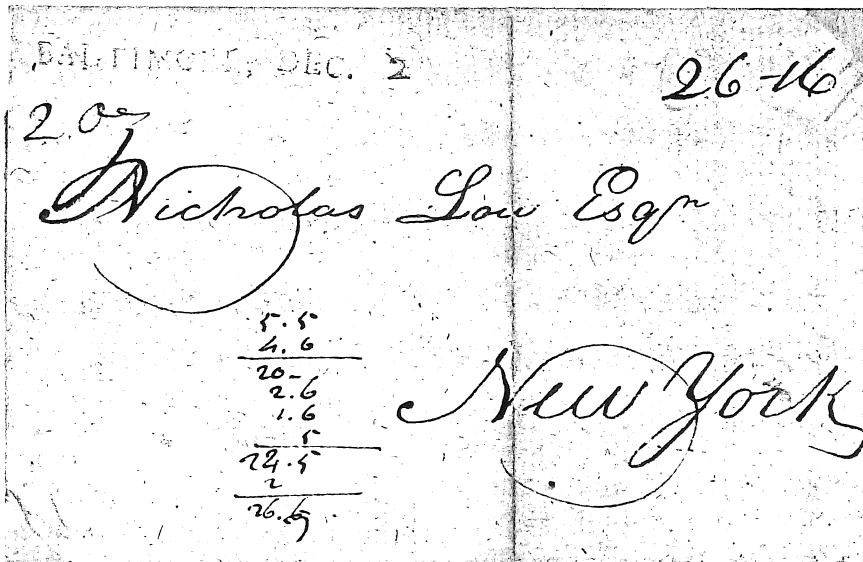 BALTIMORE, DEC. 2
26-16
2 Oz
Nicholas Low Esqr
5.5
4.6
20-
2.6
1.6
5
24.5
2
26.
New York